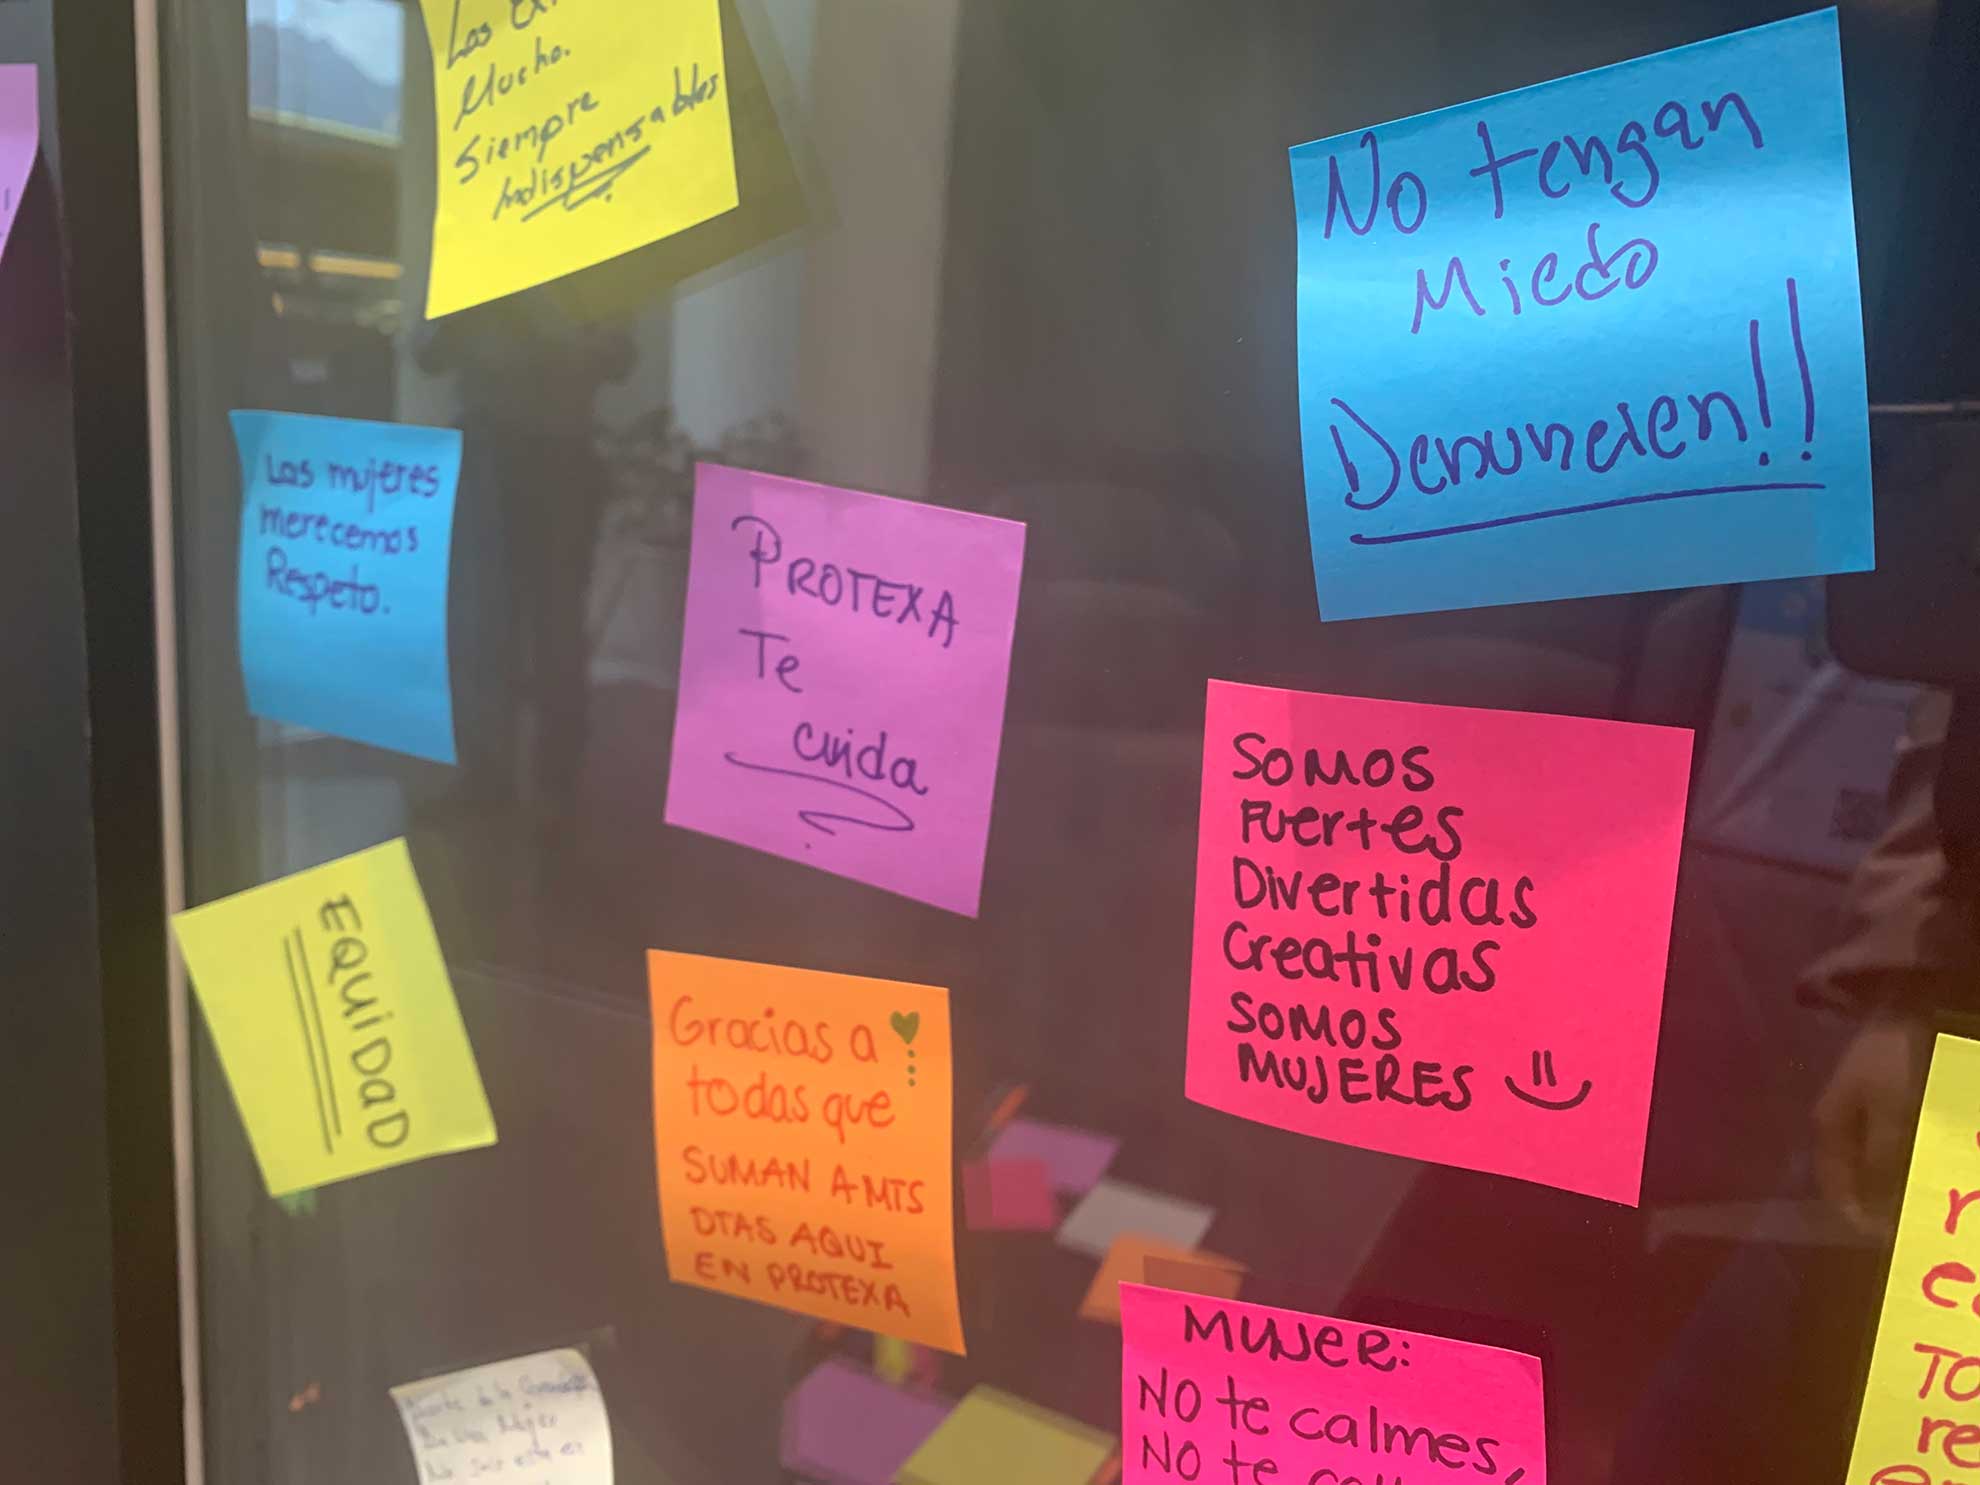 Mucho.
Siempre
Indispensables
No tengan
Miedo
Denuncien!!
Las mujeres
merecemos
Respeto.
PROTEXA
Te
cuida
SOMOS
Fuertes
Divertidas
Creativas
SOMOS
MUJERES
EQUIDAD
Gracias a
todas que
SUMAN A MIS
DIAS AQUI
EN PROTEXA
MUJER:
NO te calmes,
NO te
TO
re